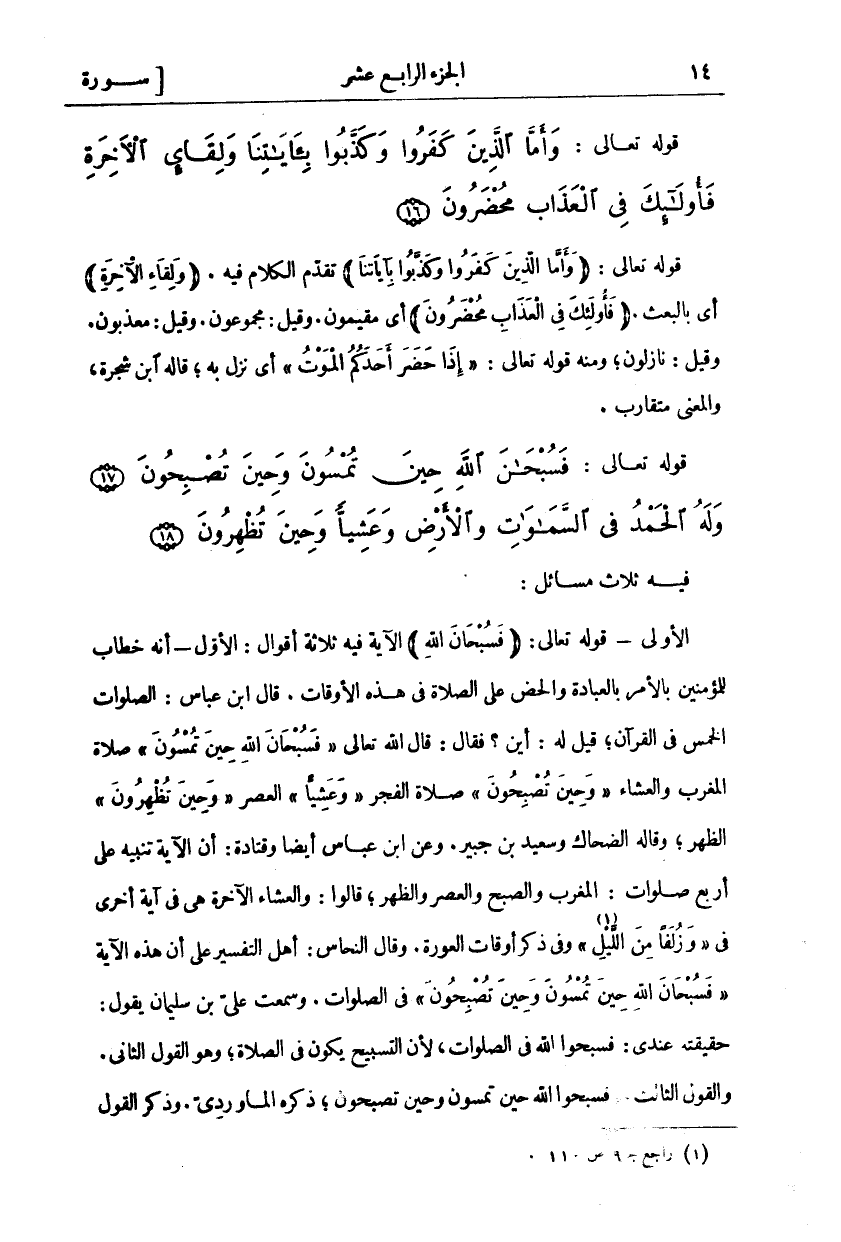 ١٤ الجزء الرابع عشر [ ســورة
قوله تعـالى : وَأَمَّا ٱلَّذِينَ كَفَرُوا وَكَذَّبُوا بِـَٔايَـٰتِنَا وَلِقَآيِ ٱلْـَٔاخِرَةِ
فَأُولَـٰٓئِكَ فِى ٱلْعَذَابِ مُحْضَرُونَ ١٦
قوله تعالى : ﴿ وَأَمَّا الَّذِينَ كَفَرُوا وَكَذَّبُوا بِآيَاتِنَا ﴾ تقدّم الكلام فيه . ﴿ وَلِقَاءِ الْآخِرَةِ ﴾
أى بالبعث . ﴿ فَأُولَئِكَ فِى الْعَذَابِ مُحْضَرُونَ ﴾ أى مقيمون. وقيل : مجموعون. وقيل : معذبون.
وقيل : نازلون؛ ومنه قوله تعالى : « إِذَا حَضَرَ أَحَدَكُمُ الْمَوْتُ » أى نزل به ؛ قاله ٱبن شجرة،
والمعنى متقارب .
قوله تعـالى : فَسُبْحَـٰنَ ٱللَّهِ حِينَ تُمْسُونَ وَحِينَ تُصْبِحُونَ ١٧
وَلَهُ ٱلْحَمْدُ فِى ٱلسَّمَـٰوَٰتِ وَٱلْأَرْضِ وَعَشِيًّا وَحِينَ تُظْهِرُونَ ١٨
فيــه ثلاث مسائل :
الأولى — قوله تعالى: ﴿ فَسُبْحَانَ اللهِ ﴾ الآية فيه ثلاثة أقوال : الأوّل — أنه خطاب
للمؤمنين بالأمر بالعبادة والحض على الصلاة فى هـذه الأوقات . قال ابن عباس : الصلوات
الخمس فى القرآن؛ قيل له : أين ؟ فقال : قال الله تعالى « فَسُبْحَانَ اللهِ حِينَ تُمْسُونَ » صلاة
المغرب والعشاء « وَحِينَ تُصْبِحُونَ » صـلاة الفجر « وَعَشِيًّا » العصر « وَحِينَ تُظْهِرُونَ »
الظهر ؛ وقاله الضحاك وسعيد بن جبير. وعن ابن عبـاس أيضا وقتادة : أن الآية تنبيه على
أربع صـلوات : المغرب والصبح والعصر والظهر ؛ قالوا : والعشاء الآخرة هى فى آية أخرى
فى « وَزُلَفًا مِنَ اللَّيْلِ (١) » وفى ذكر أوقات العورة. وقال النحاس : أهل التفسير على أن هذه الآية
« فَسُبْحَانَ اللهِ حِينَ تُمْسُونَ وَحِينَ تُصْبِحُونَ » فى الصلوات . وسمعت علىّ بن سليمان يقول :
حقيقته عندى : فسبحوا الله فى الصلوات، لأن التسبيح يكون فى الصلاة؛ وهو القول الثانى.
والقول الثالث — فسبحوا الله حين تمسون وحين تصبحون ؛ ذكره المـاوردىّ. وذكر القول
(١) راجع جـ ٩ ص ١١٠ .